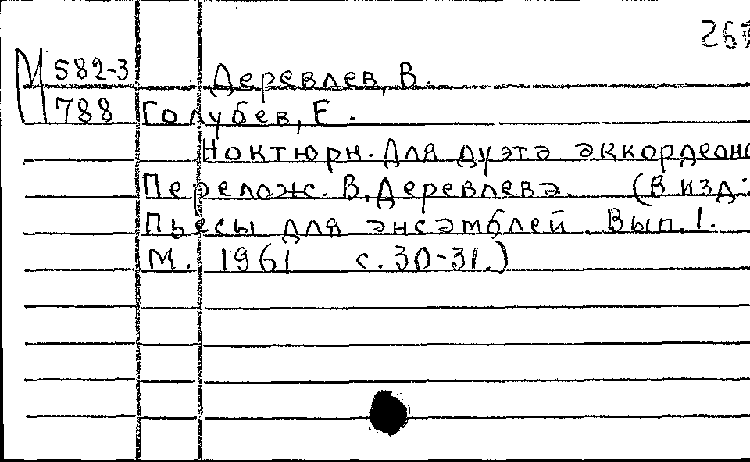 267
М 582-3 Деревлев, В.
788 Голубев, Е.
Ноктюрн. Для дуэта аккордеоно
Перелож. В. Деревлева. (В изд:
Пьесы для ансамблей. Вып. 1.
М. 1961 с. 30-31.)